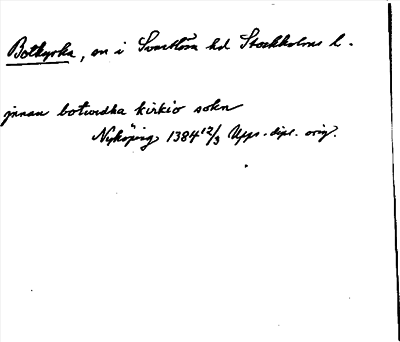 Botkyrka, sn i Svartlösa hd Stockholms l.
jnnan botwidha kirkio sokn
Nyköping 1384 12/3 Upps. dipl. orig.